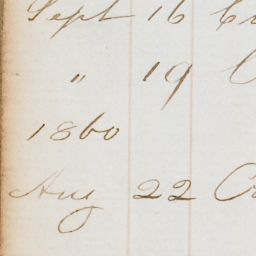 Sept 16
" 19
1860
Aug 22